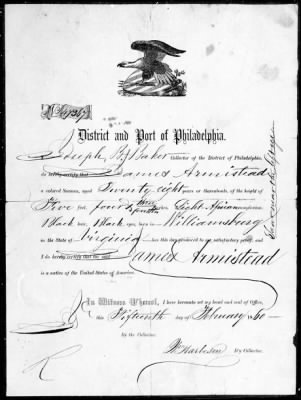 District and Port of Philadelphia.
I Joseph B. Baker Collector of the District of Philadelphia,
do hereby certify that James Armistead
a colored Seaman, aged Twenty eight years or thereabouts, of the height of
Five feet, four & three fourths inches, Light African complexion,
Black hair, Black eyes, born in Williamsburg
in the State of Virginia has to my satisfactory proof, and
I do hereby certify that the said James Armistead
is a native of the United States of America.
In Witness Whereof, I have hereunto set my hand and seal of Office,
this Fifteenth day of February 60
By the Collector.
Dy Collector